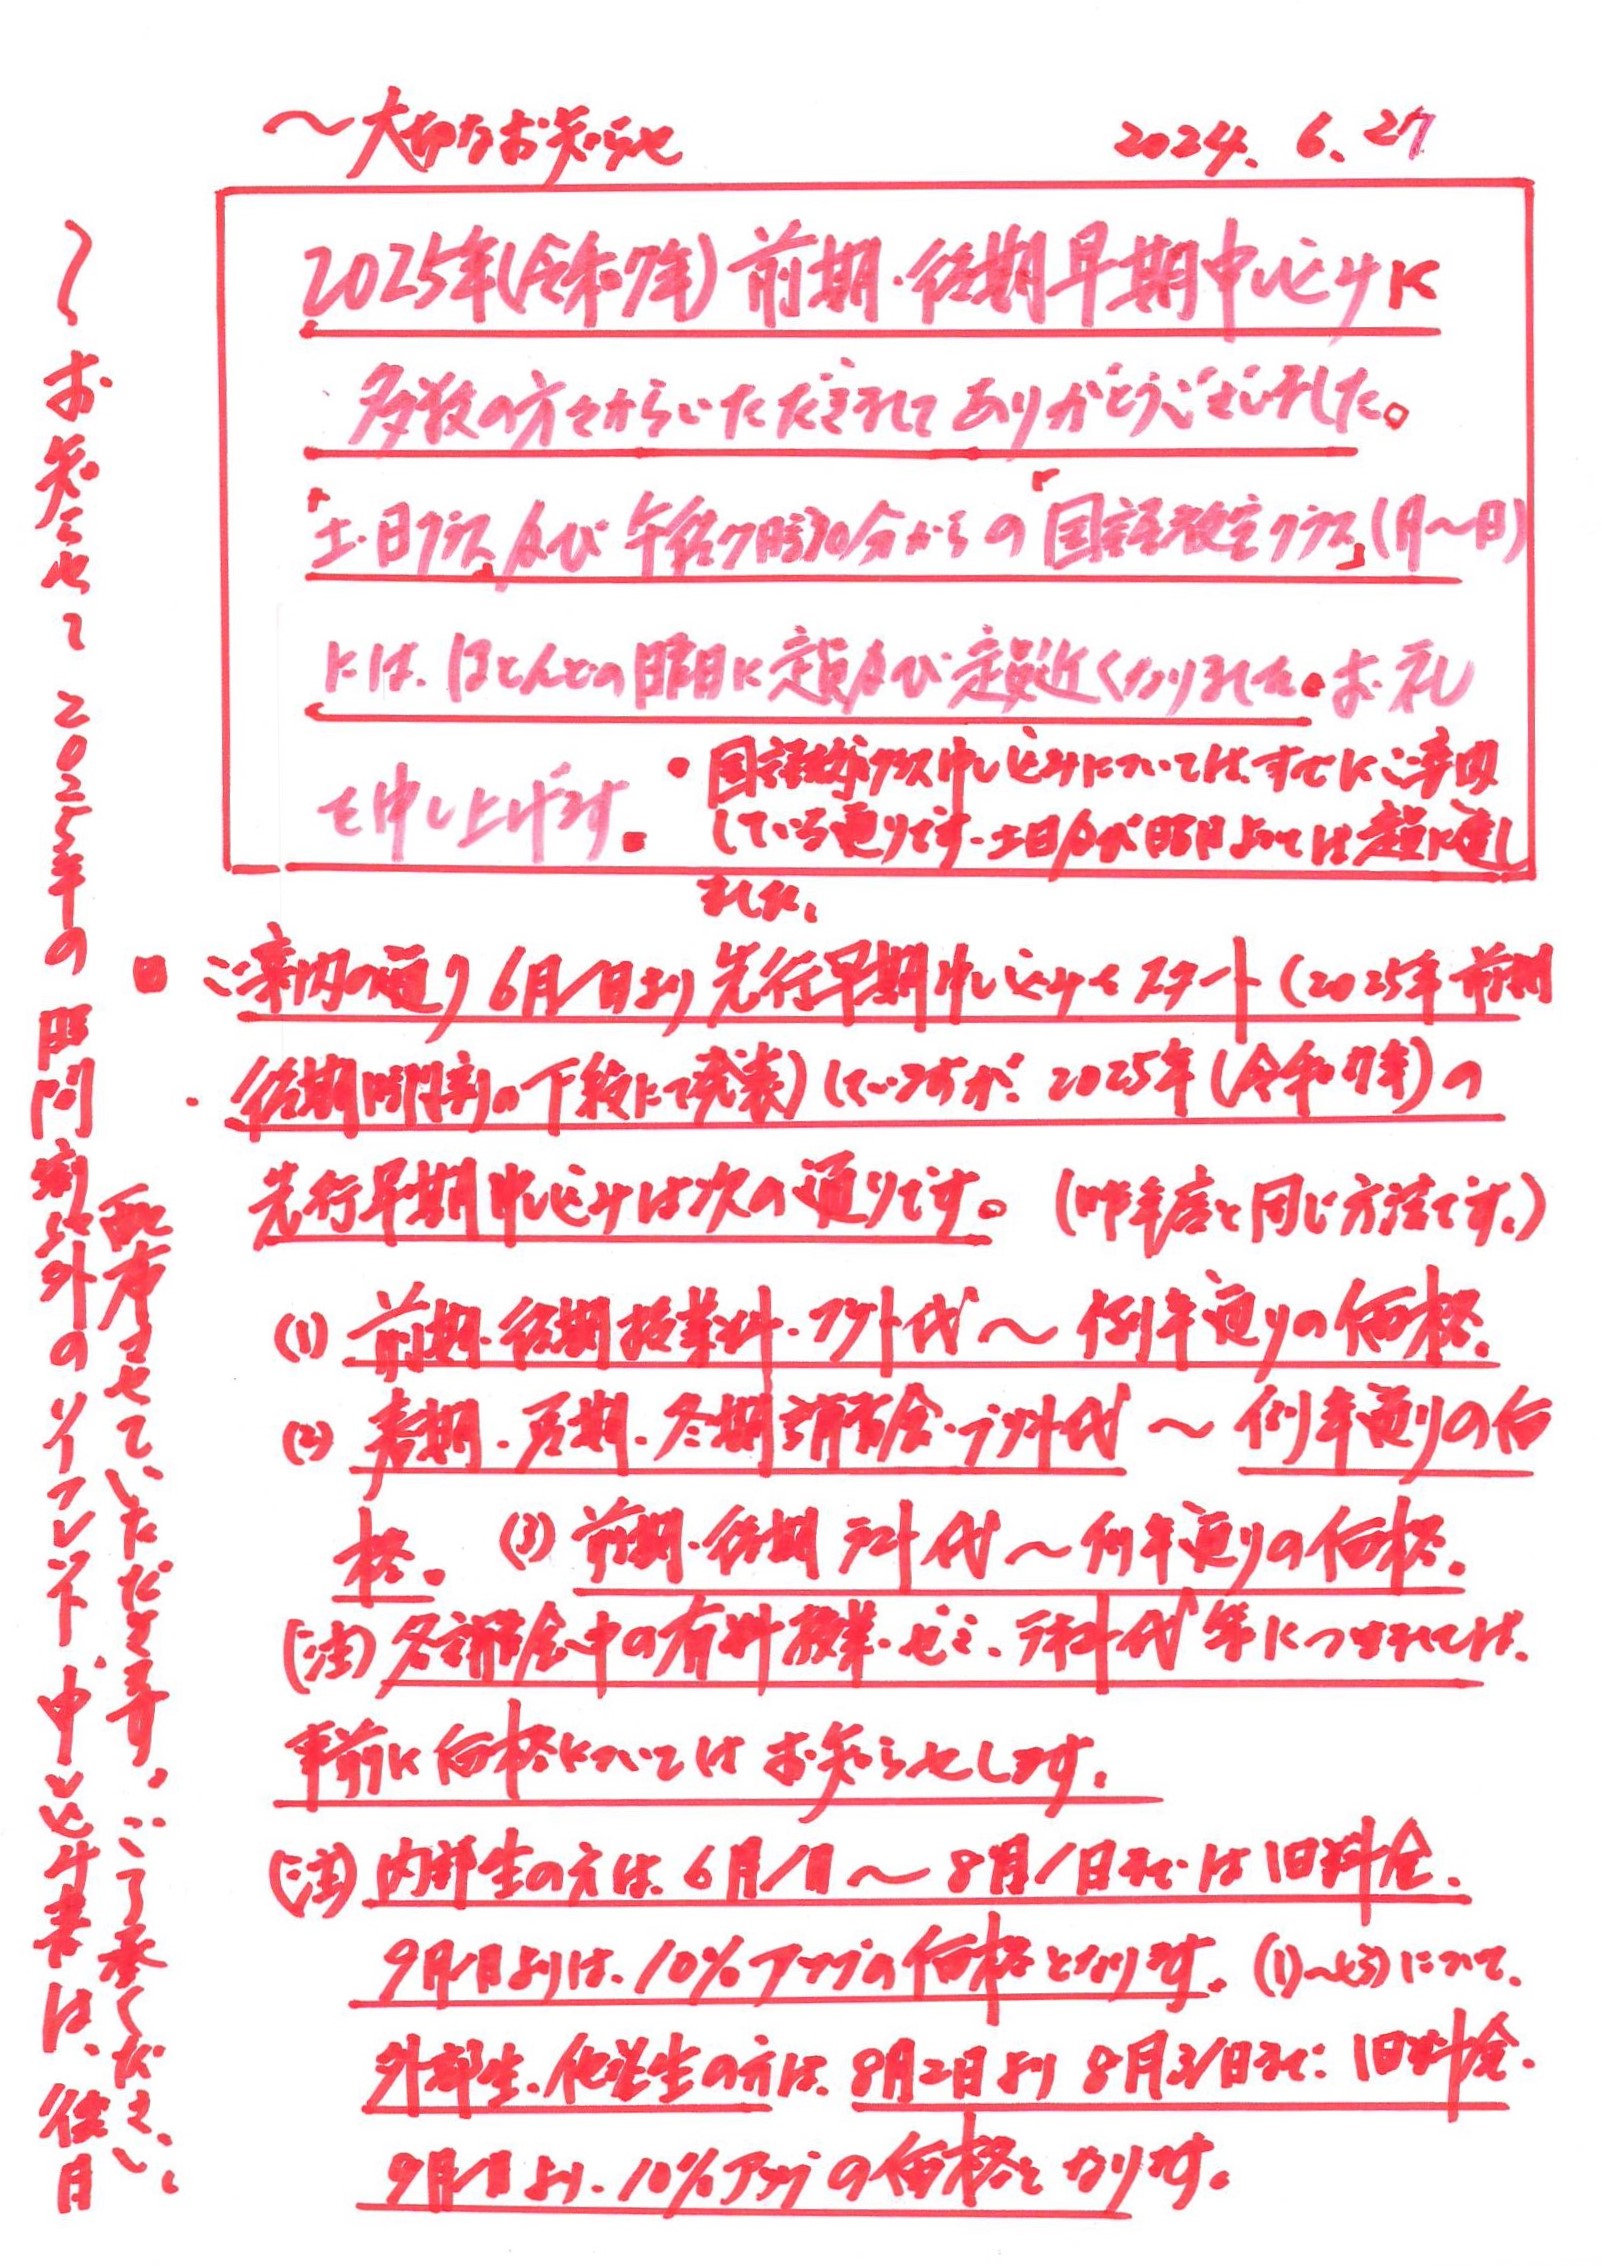 〜大切なお知らせ 2024.6.27
2025年(令和7年)前期・後期早期申し込みに
多数の方々からいただきましてありがとうございました。
「土・日クラス」及び午後7時30分からの「国語教室クラス」(月〜日)
には、ほとんどの曜日に定員及び定員近くなりました。お礼
を申し上げます。
・国語教室クラス申し込みについては、すでにご案内
している通りです。土日及び曜日よっては定員に達し
ました。
ご案内の通り6月1日より先行早期申し込みをスタート(2025年前期
・後期時間割の下段にて発表)していますが、2025年(令和7年)の
先行早期申し込みは次の通りです。(昨年度と同じ方法です。)
(1) 前期・後期授業料・テキスト代〜例年通りの価格。
(2) 春期・夏期・冬期講習会・テキスト代〜例年通りの価
格。 (3) 前期・後期テスト代〜例年通りの価格。
(注) 各講習会中の有料授業・ゼミ、テキスト代等につきましては、
事前に価格についてはお知らせします。
(注) 内部生の方は、6月1日〜8月1日までは旧料金。
9月1日よりは、10%アップの価格となります。(1)〜(3)について。
外部生、他塾生の方は、8月2日より8月31日まで旧料金。
9月1日より、10%アップの価格となります。
〜お知らせ〜2025年の時間割以外のリーフレット申し込み書は、後日
配布させていただきます。ご了承ください。